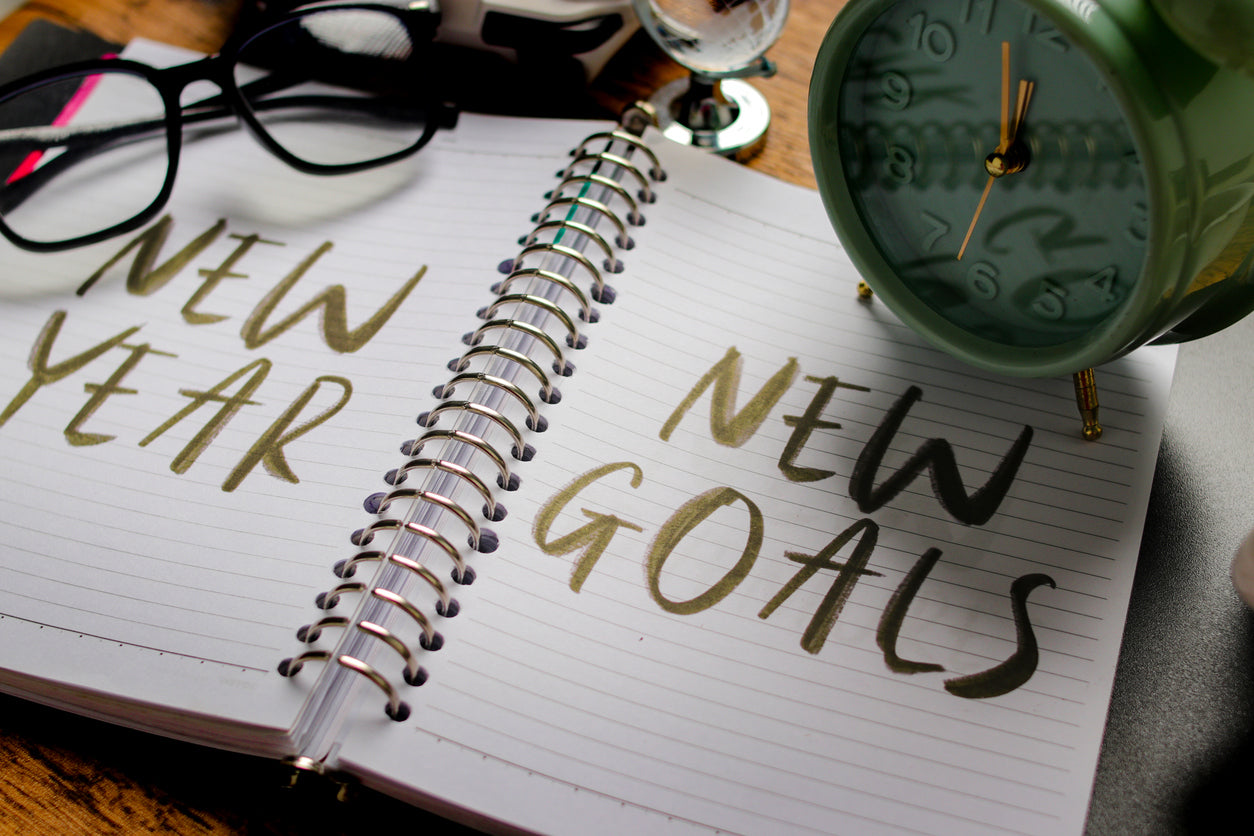 NEW
YEAR
NEW
GOALS
10
11
12
9
8
7
6
5
4